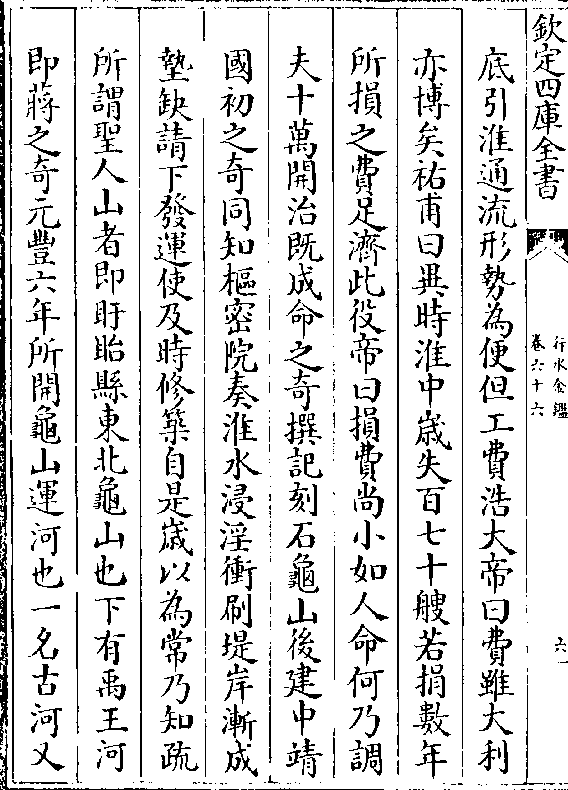 欽定四庫全書
行水金鑑
卷六十六
六
底引淮通流形勢為便但工費浩大帝曰費雖大利
亦博矣祐甫曰異時淮中歲失百七十艘若捐數年
所損之費足濟此役帝曰損費尚小如人命何乃調
夫十萬開治既成命之奇撰記刻石龜山後建中靖
國初之奇同知樞密院奏淮水浸淫衝刷堤岸漸成
墊缺請下發運使及時修築自是歲以為常乃知疏
所謂聖人山者即盱眙縣東北龜山也下有禹王河
即蔣之奇元豐六年所開龜山運河也一名古河又